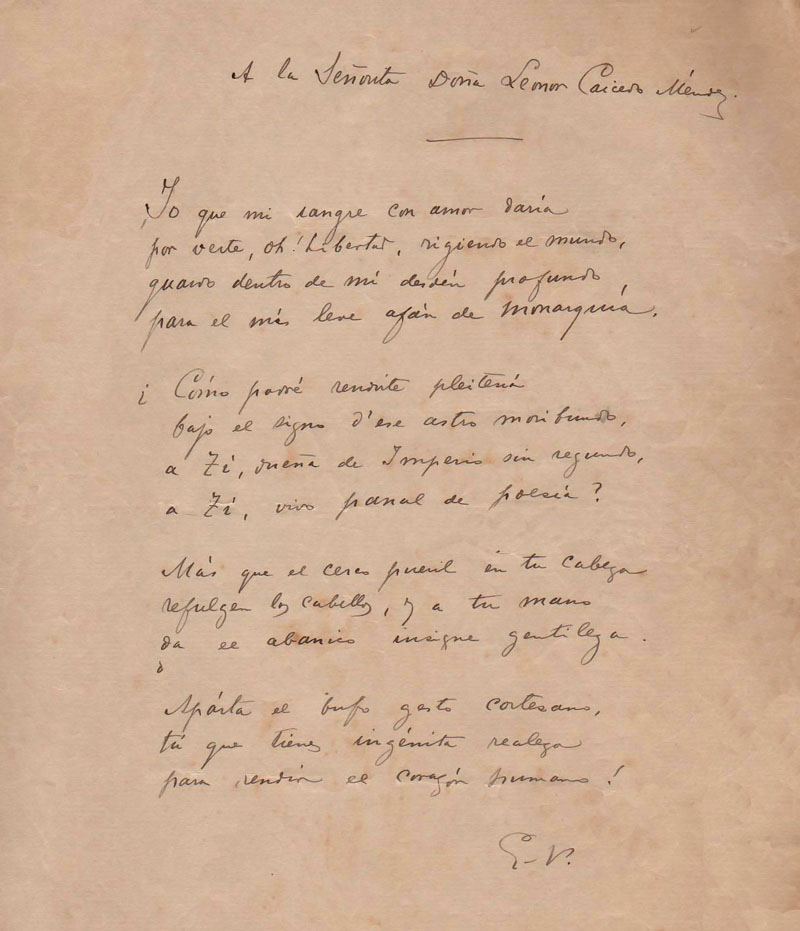 A la Señorita Doña Leonor Caicedo Méndez.
Yo que mi sangre con amor daría
por verte, oh! Libertad, rigiendo el mundo,
guardo dentro de mí desdén profundo
para el más leve afán de monarquía.
¿ Cómo podré rendirte pleitesía
bajo el signo d'ese astro moribundo,
a Tí, dueña de Imperio sin segundo,
a Tí, vivo panal de poesía?
Más que el cerco pueril en tu cabeza
refulgen los cabellos, y a tu mano
da el abanico insigne gentileza.
Apárta el bufo gesto cortesano,
tú que tienes ingénita realeza
para rendir el corazón humano!
G-V.